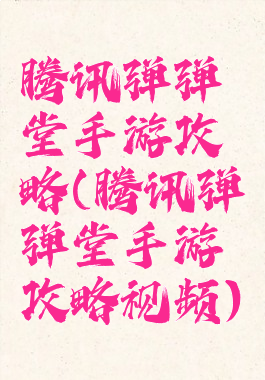 腾讯弹弹
堂手游攻
略(腾讯弹
弹堂手游
攻略视频)